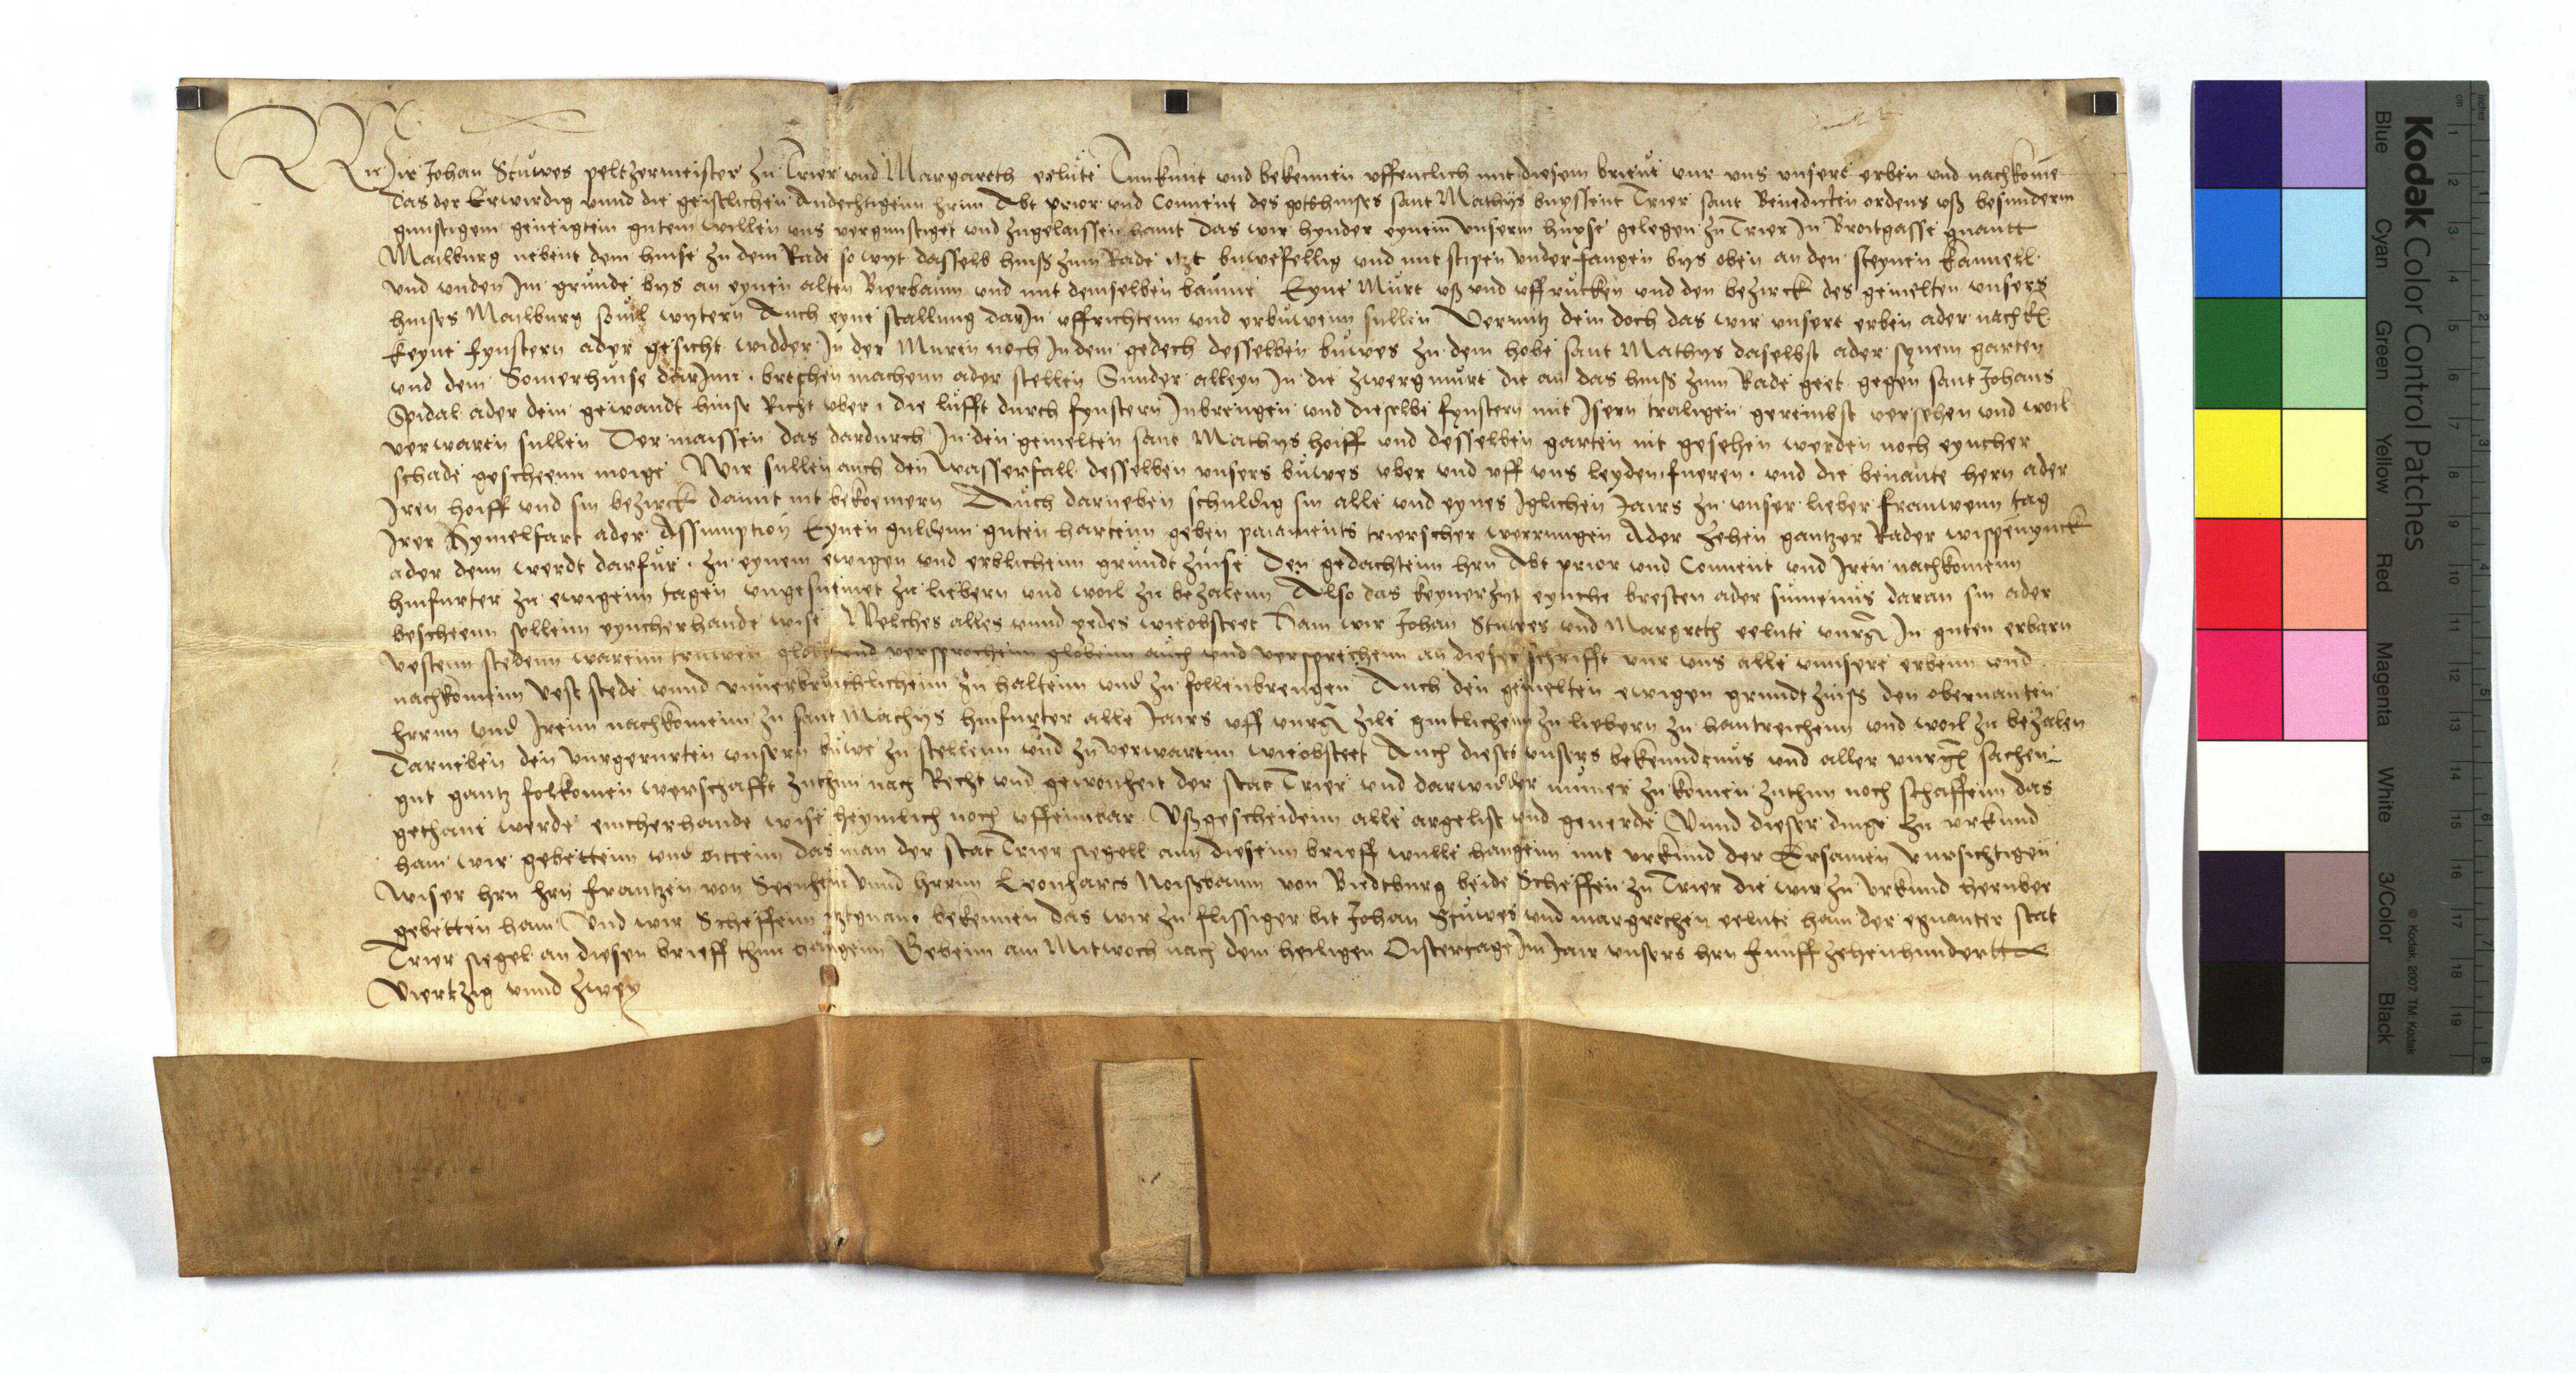 Wir Johan Stuwes peltzermeister zu Trier und Margareth eelute Tunkunt und bekennen uffenclich mit diesem brieue vur uns unsere erben und nachkome
das der Erwirdig unnd die geistlichen Andechtigenn hern Abt prior und Convent des gotshuses sant Mathys buyssent Trier sant Benedicten ordens uß besunderm
gunstigem geneigtem gutem willen uns vergunstiget und zugelaissen hant das wir hynder eynem unserm huyse gelegen zu Trier In Broitgasse gnantt
Mailburg nebent dem huse zu dem Rade so wyt dasselb huiß zum Rade itzt buwefellig und mit stipen underfangen bys oben an den steynen kannell
und unden Im grunde bys an eynen alten Bierbaum und mit demselben baume Eyne Mure uß und uffrucken und den bezirck des gemelten unsers
huises Mailburg souil wytern Auch eyne stallung darIn uffrichtenn und erbuwenn sullen Vermitz dem doch das wir unsere erben ader nachk
keyne fynstern ader gesicht widder In der Muren noch In dem gedech desselben buwes zu dem hobe sant Mathys daselbst ader synem garten
und dem Somerhuise darInn brechen machenn ader stellen Sunder alleyn In die zwergmure die an das huiß zum Rade geet gegen sant Johans
Spidal ader dem gewandt huise Richt uber die lufft durch fynstern Inbrengen und dieselbe fynstern mit Isern traligen gerembst versehen und woil
verwaren sullen Der maissen das dardurch In den gemelten sant Mathys hoiff und desselben garten nit gesehen werden noch eyncher
schade gescheenn moige Wir sullen auch den wasserfall desselben unsers buwes uber und uff uns leyden fueren und die benante hern ader
Iren hoiff und sin bezirck damit nit bekoemern Auch darneben schuldig sin alle und eynes Iglichen Jairs zu unser lieber frauwenn tag
Irer Hymelfart ader Assumption Eynen guldenn guten hartenn geben paiaments trierscher werrungen Ader zehen gantzer Rader wispenynck
ader denn werdt darfur zu eynem ewigen und erblichenn grundt zinse Den gedachtenn hrn Abt prior und Convent und Iren nachkomenn
hinfurter zu ewigenn tagen ungesumet zu liebern und woil zu bezalenn Also das keynerzyt eynche bresten ader sumenis daran sin ader
bescheenn sollenn eyncherhande wise Welches alles unnd yedes wieobsteet Ham wir Johan Stuwes und Margreth eelute vurg In guten erbarn
vestenn stedenn warenn truwen globt und versprochenn globenn auch und versprechenn an dieser schrifft vur uns alle unnsere erbenn und
nachkomenn vest stede unnd unuerbruchlichenn zu haltenn und zu follenbrengen Auch den gemelten ewigen grundt zinß den obernanten
herrnn und Irenn nachkomenn zu sant Mathys hinfurter alle Jairs uff vurg zile guttlichenn zu liebern zu hantreichenn und woil zu bezalen
Darneben den vurgerurten unsern buwe zu stellenn und zu verwarenn wieobsteet Auch dieses unsers bekenndenis und aller vurg sachen
gut gantz folkomen werschafft zuthun nach Recht und gewonheit der stat Trier und darwidder nummer zu komen zuthun noch schaffenn das
gethane werde eincherhande wise heymlich noch uffennbar Ußgescheidenn alle argelist und geuerde Unnd dieser dinge zu urkund
ham wir gebettenn und bittenn das man der stat Trier siegell ann diesenn brieff wulle hangenn mit urkund der Ersamen vursichtigen
wiser hrn hrn Frantzen von Seenheim unnd herrnn Leonharts Noißbaum von Biedtburg beide Scheffen zu Trier die wir zu Urkund heruber
gebetten ham Und wir Scheffenn itztgnant bekennen das wir zu flissiger bit Johan Stuwes und margrethen eelute ham der egnanter stat
Trier siegel an diesen brieff thun hangenn Gebenn am Mitwoch nach dem heiligen Oistertage Im Jair unsers hrn Funff zehenhundertt
Viertzig unnd zwey
Kodak Color Control Patches
Blue Cyan Green Yellow Red Magenta White 3/Color Black
© Kodak, 2007 TM: Kodak
cm 1 2 3 4 5 6 7 8 9 10 11 12 13 14 15 16 17 18 19
inches 1 2 3 4 5 6 7 8